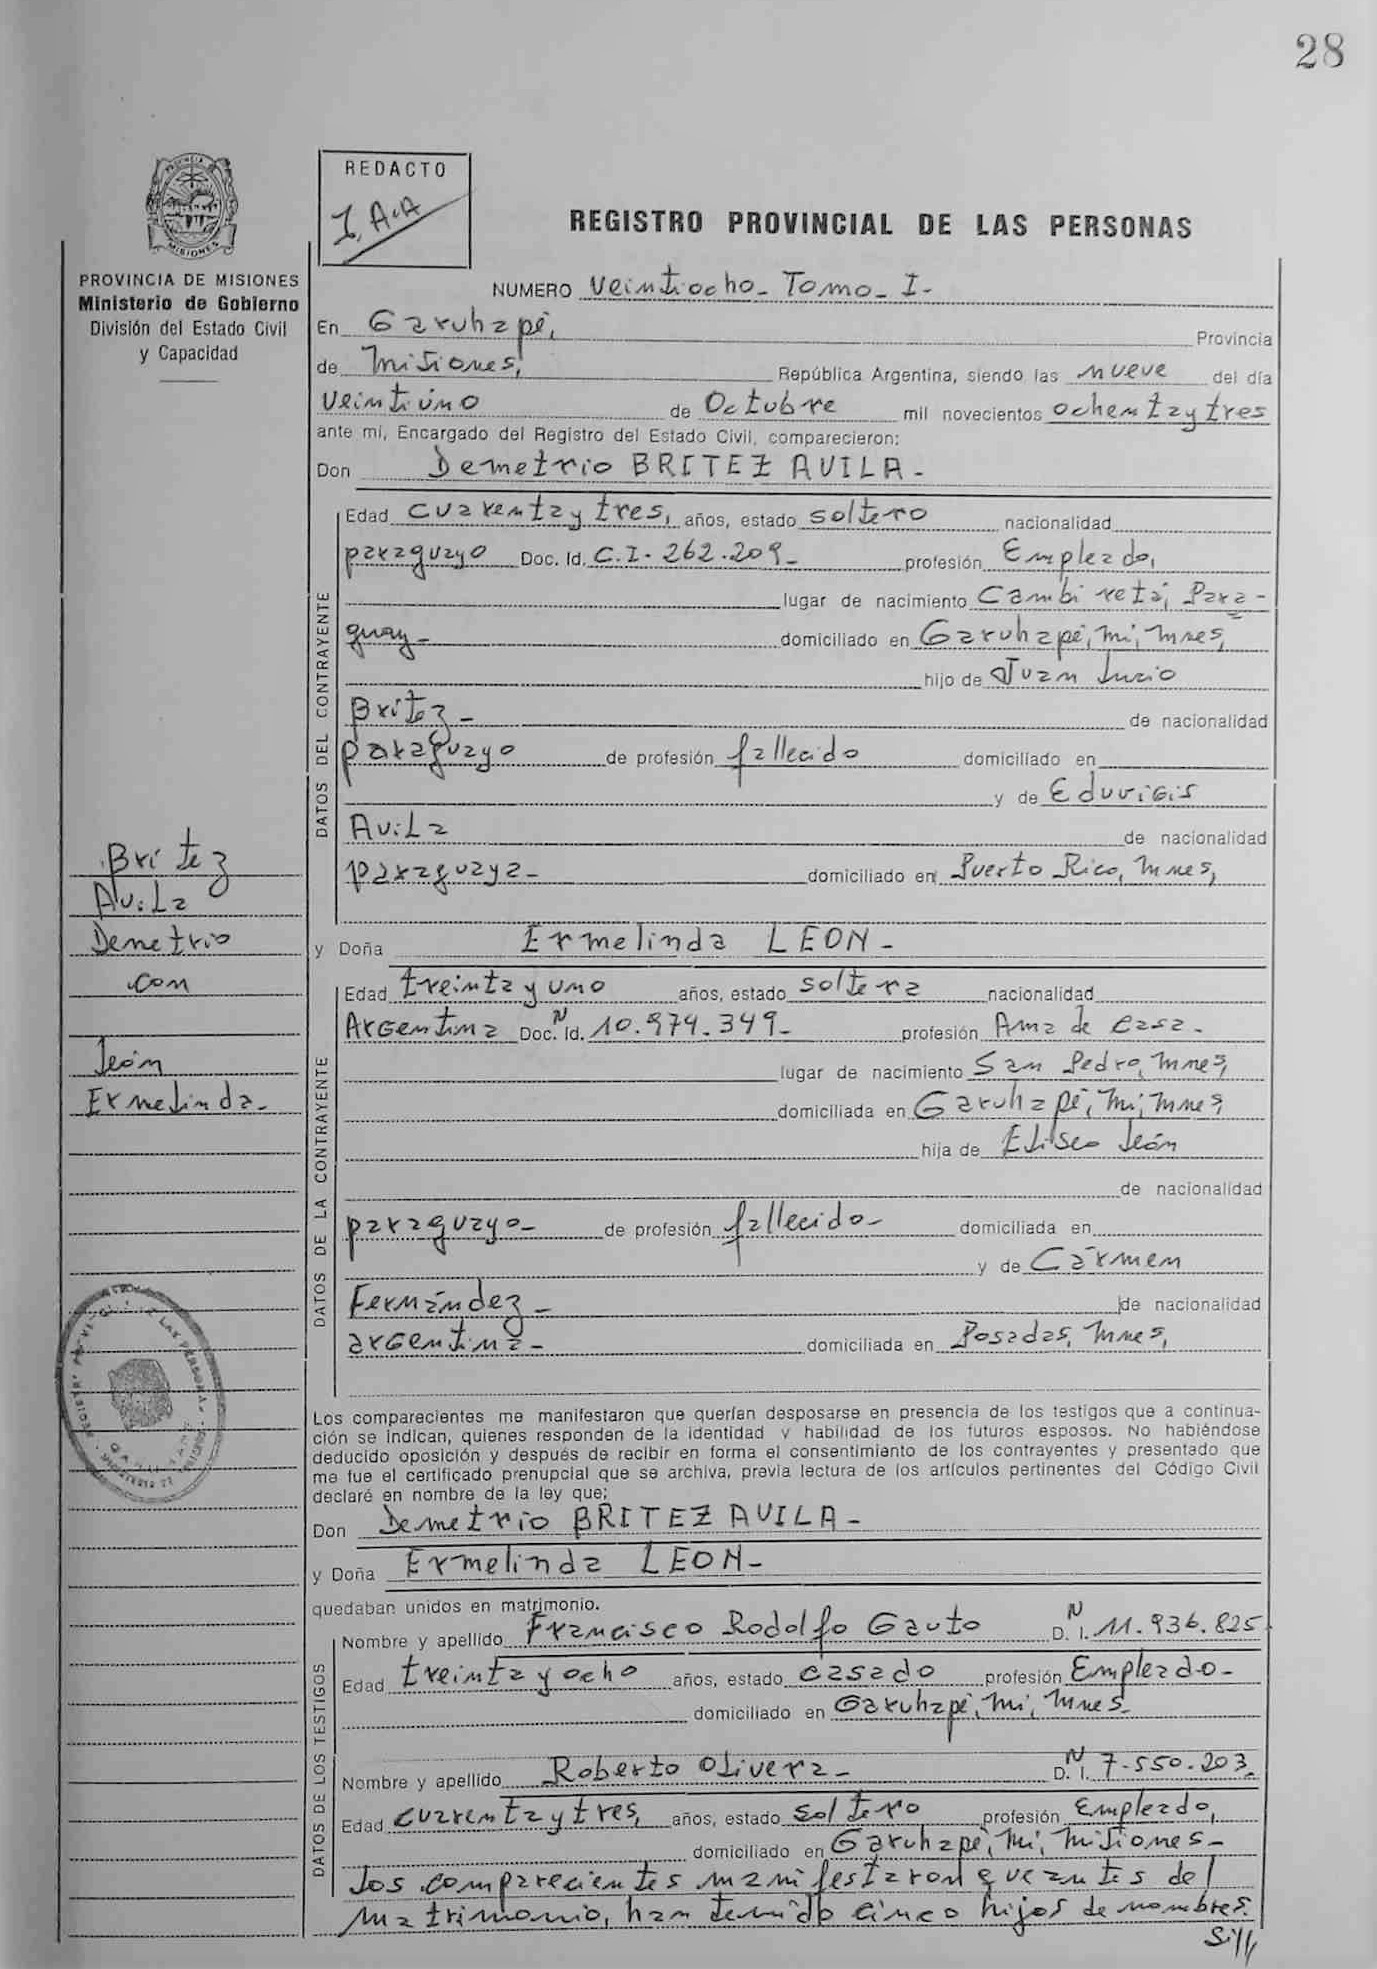 28
REDACTO
I. A.A
REGISTRO PROVINCIAL DE LAS PERSONAS
MISIONES
PROVINCIA DE MISIONES
Ministerio de Gobierno
División del Estado Civil
y Capacidad
NUMERO Veintiocho- Tomo- I-
En Garuhapé, Provincia
de Misiones, República Argentina, siendo las nueve del día
Veintiúno de Octubre mil novecientos ochenta y tres
ante mí, Encargado del Registro del Estado Civil, comparecieron:
Don Demetrio BRITEZ AVILA-
DATOS DEL CONTRAYENTE
Edad Cuarenta y tres, años, estado soltero nacionalidad
paraguayo Doc. Id. C.I. 262.209- profesión Empleado,
lugar de nacimiento Cambi retá, Para-
guay- domiciliado en Garuhapé, Mi, Mnes,
hijo de Juan Lucio
Britez- de nacionalidad
paraguayo de profesión fallecido domiciliado en
y de Eduvigis
Avila de nacionalidad
paraguaya- domiciliado en Puerto Rico, Mnes,
Britez
Avila
Demetrio
con
León
Ermelinda-
y Doña Ermelinda LEON-
DATOS DE LA CONTRAYENTE
Edad treinta y uno años, estado soltera nacionalidad
Argentina Doc. N Id. 10.974.349- profesión Ama de casa-
lugar de nacimiento San Pedro, Mnes,
domiciliada en Garuhapé, Mi, Mnes,
hija de Eliseo León
de nacionalidad
paraguayo- de profesión fallecido- domiciliada en
y de Cármen
Fernández- de nacionalidad
argentina- domiciliada en Posadas, Mnes,
Los comparecientes me manifestaron que querían desposarse en presencia de los testigos que a continua-
ción se indican, quienes responden de la identidad y habilidad de los futuros esposos. No habiéndose
deducido oposición y después de recibir en forma el consentimiento de los contrayentes y presentado que
me fue el certificado prenupcial que se archiva, previa lectura de los artículos pertinentes del Código Civil
declaré en nombre de la ley que;
Don Demetrio BRITEZ AVILA-
y Doña Ermelinda LEON-
quedaban unidos en matrimonio.
DATOS DE LOS TESTIGOS
Nombre y apellido Francisco Rodolfo Gauto D. N I. 11.936.825
Edad treinta y ocho años, estado casado profesión Empleado-
domiciliado en Garuhapé, Mi, Mnes-
Nombre y apellido Roberto Olivera- D. N I. 7.550.203
Edad cuarenta y tres, años, estado soltero profesión Empleado,
domiciliado en Garuhapé, Mi, Misiones-
Los comparecientes manifestaron que antes del
matrimonio, han tenido cinco hijos de nombres.